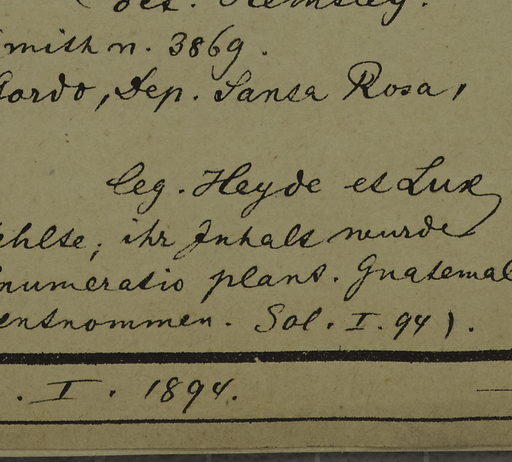 (des. Hemsley.
Smith n. 3869.
Gordo, Dep. Santa Rosa,
leg. Heyde et Lux
ehlte; ihr Inhalt wurde
Enumeratio plant. Guatemal
entnommen. Sol. I. 94).
. I. 1894.